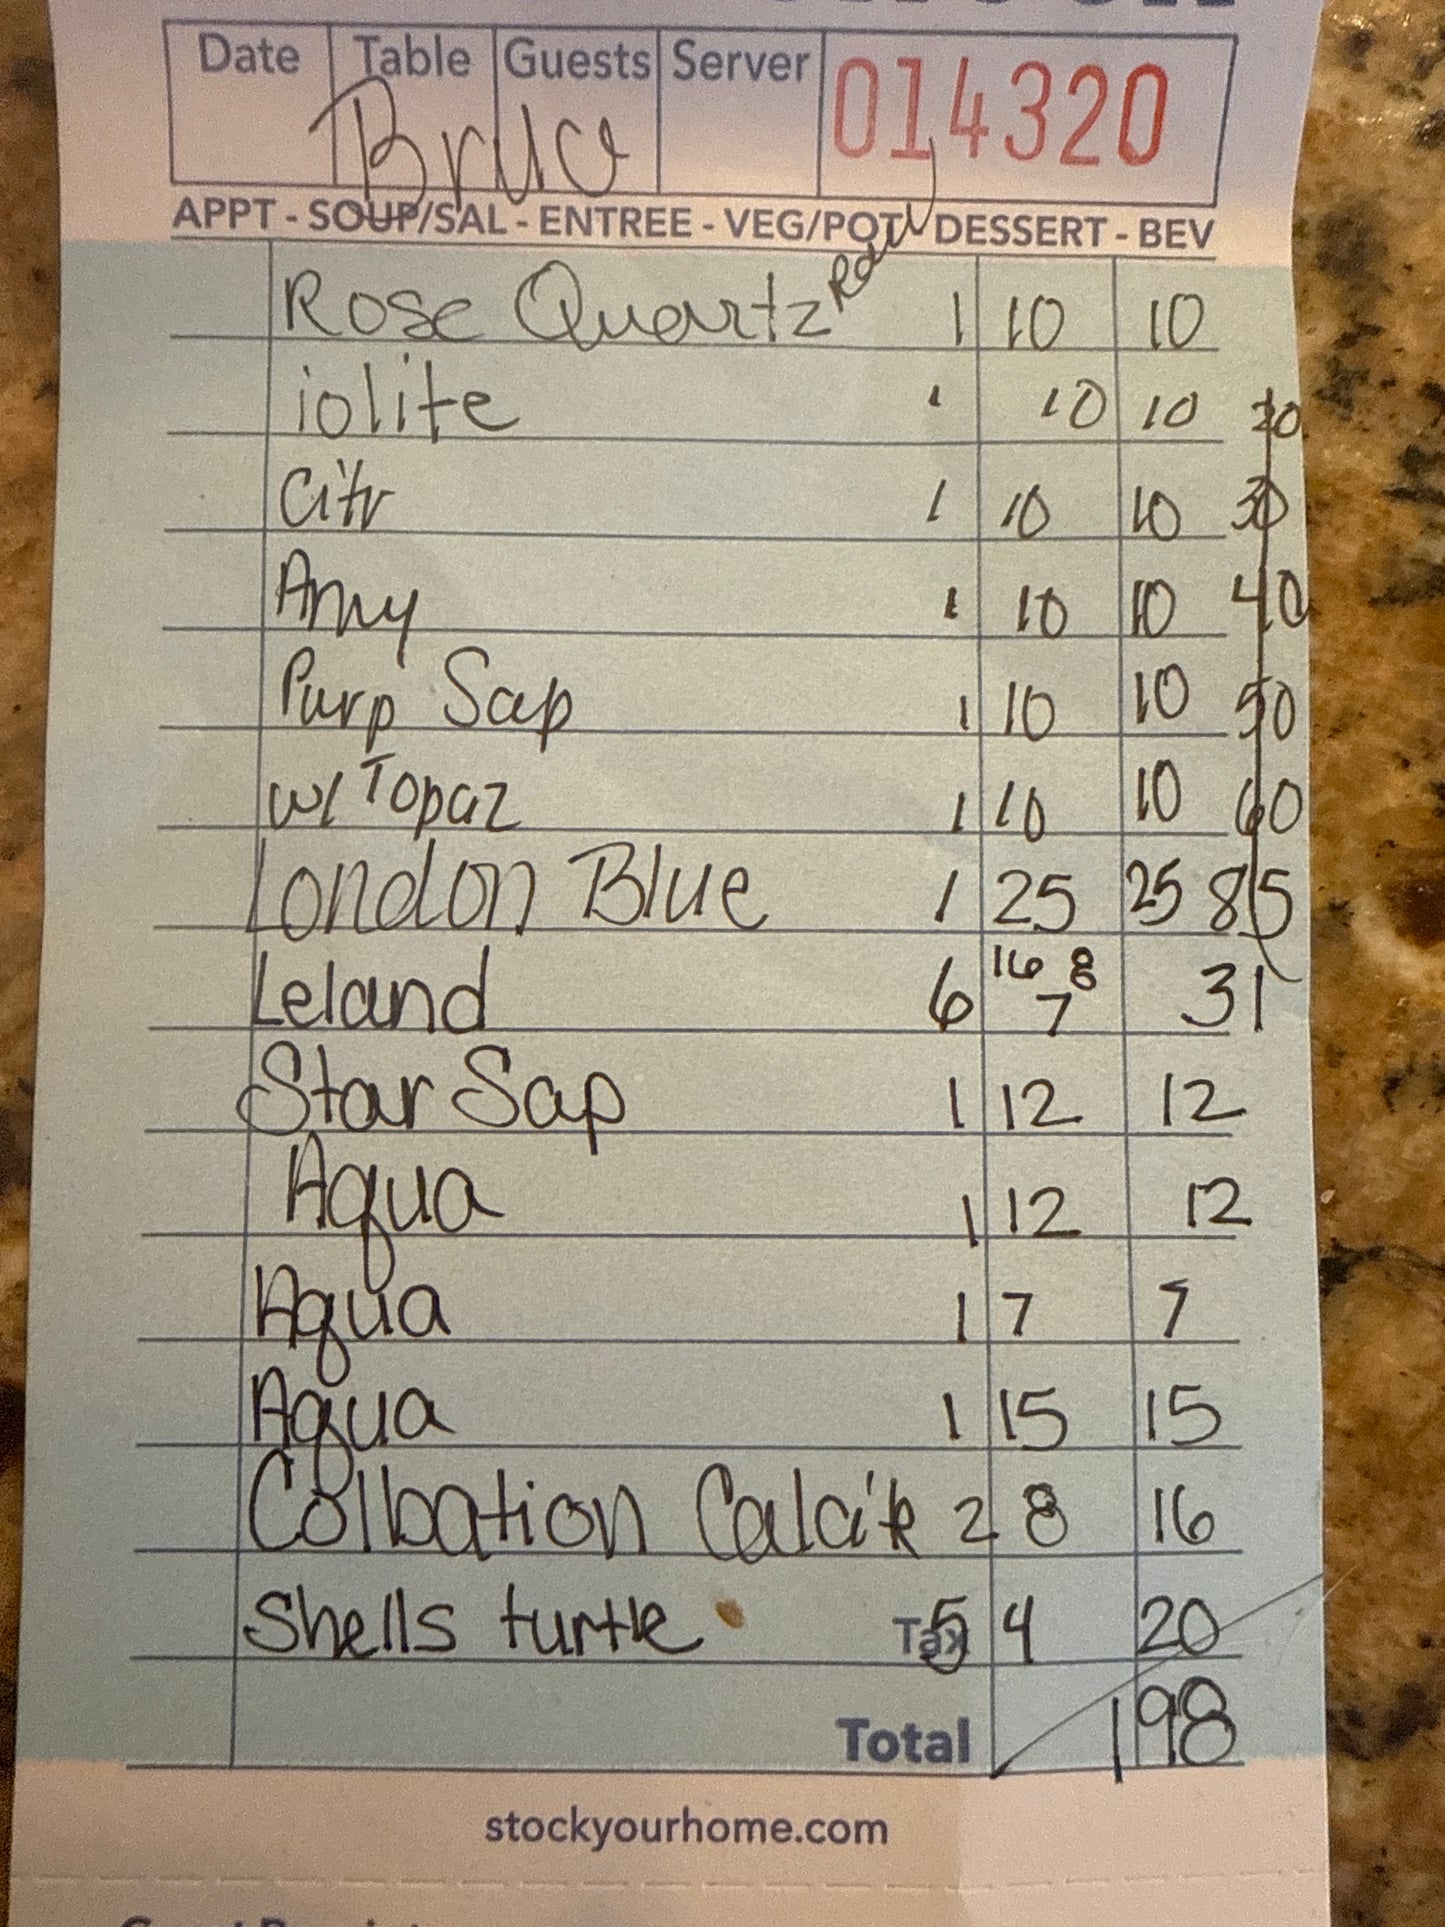 Date Table Guests Server 014320
Bruce
APPT - SOUP/SAL - ENTREE - VEG/POT - DESSERT - BEV
Rose Quartz Raw 1 10 10
iolite 1 10 10 20
Citr 1 10 10 30
Amy 1 10 10 40
Purp Sap 1 10 10 50
w/ Topaz 1 10 10 60
London Blue 1 25 25 85
Leland 6 16 8 7 31
Star Sap 1 12 12
Aqua 1 12 12
Aqua 1 7 7
Aqua 1 15 15
Colbation Calcite 2 8 16
Shells turtle Tax 5 4 20
Total 198
stockyourhome.com